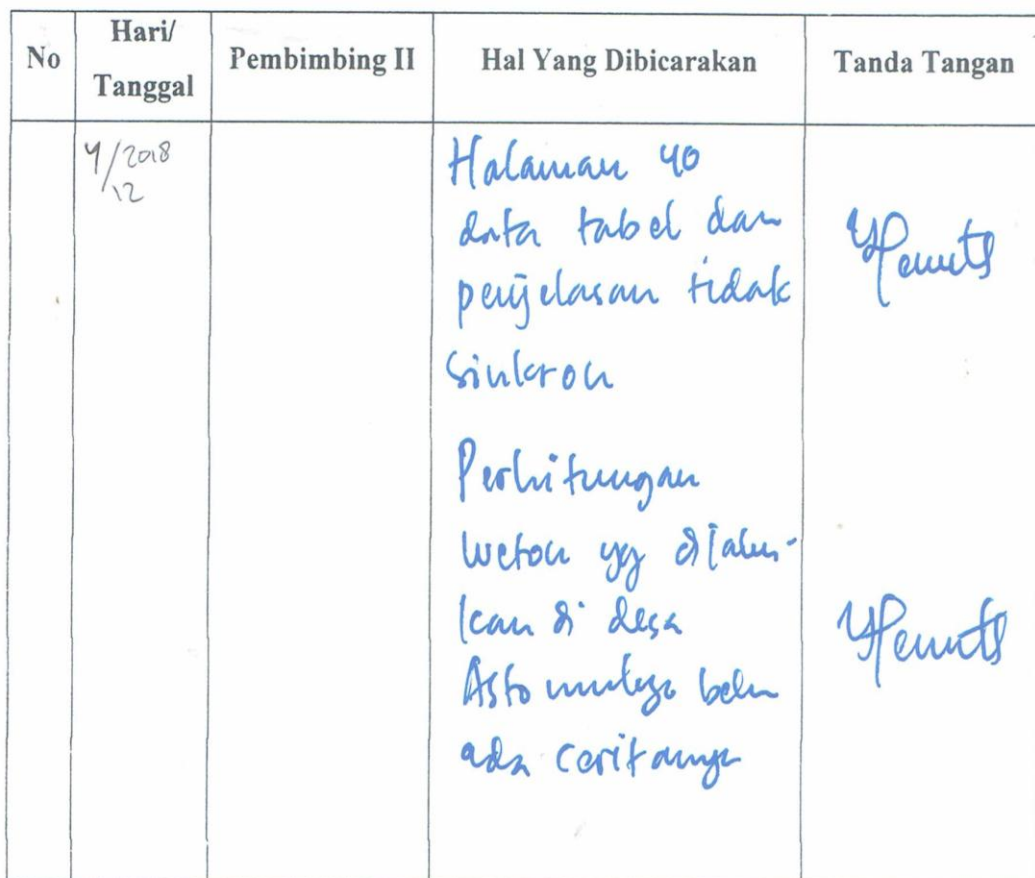 No
Hari/
Tanggal
Pembimbing II
Hal Yang Dibicarakan
Tanda Tangan
4/2018
12
Halaman 40
data tabel dan
penjelasan tidak
sinkron
Perhitungan
weton yg dilaku-
kan di desa
Astomulyo belum
ada ceritanya